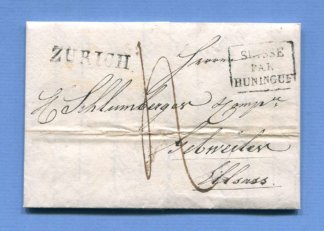 ZURICH.
Herren
SUISSE
PAR
HUNINGUE
E Schlumberger & Comp.
Gebweiler
Elsass.